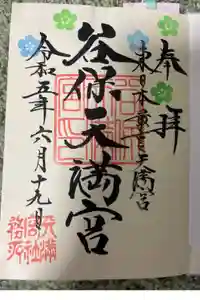 奉拝
東日本最古天満宮
谷保天満宮
令和五年六月十九日
天満宮社務所